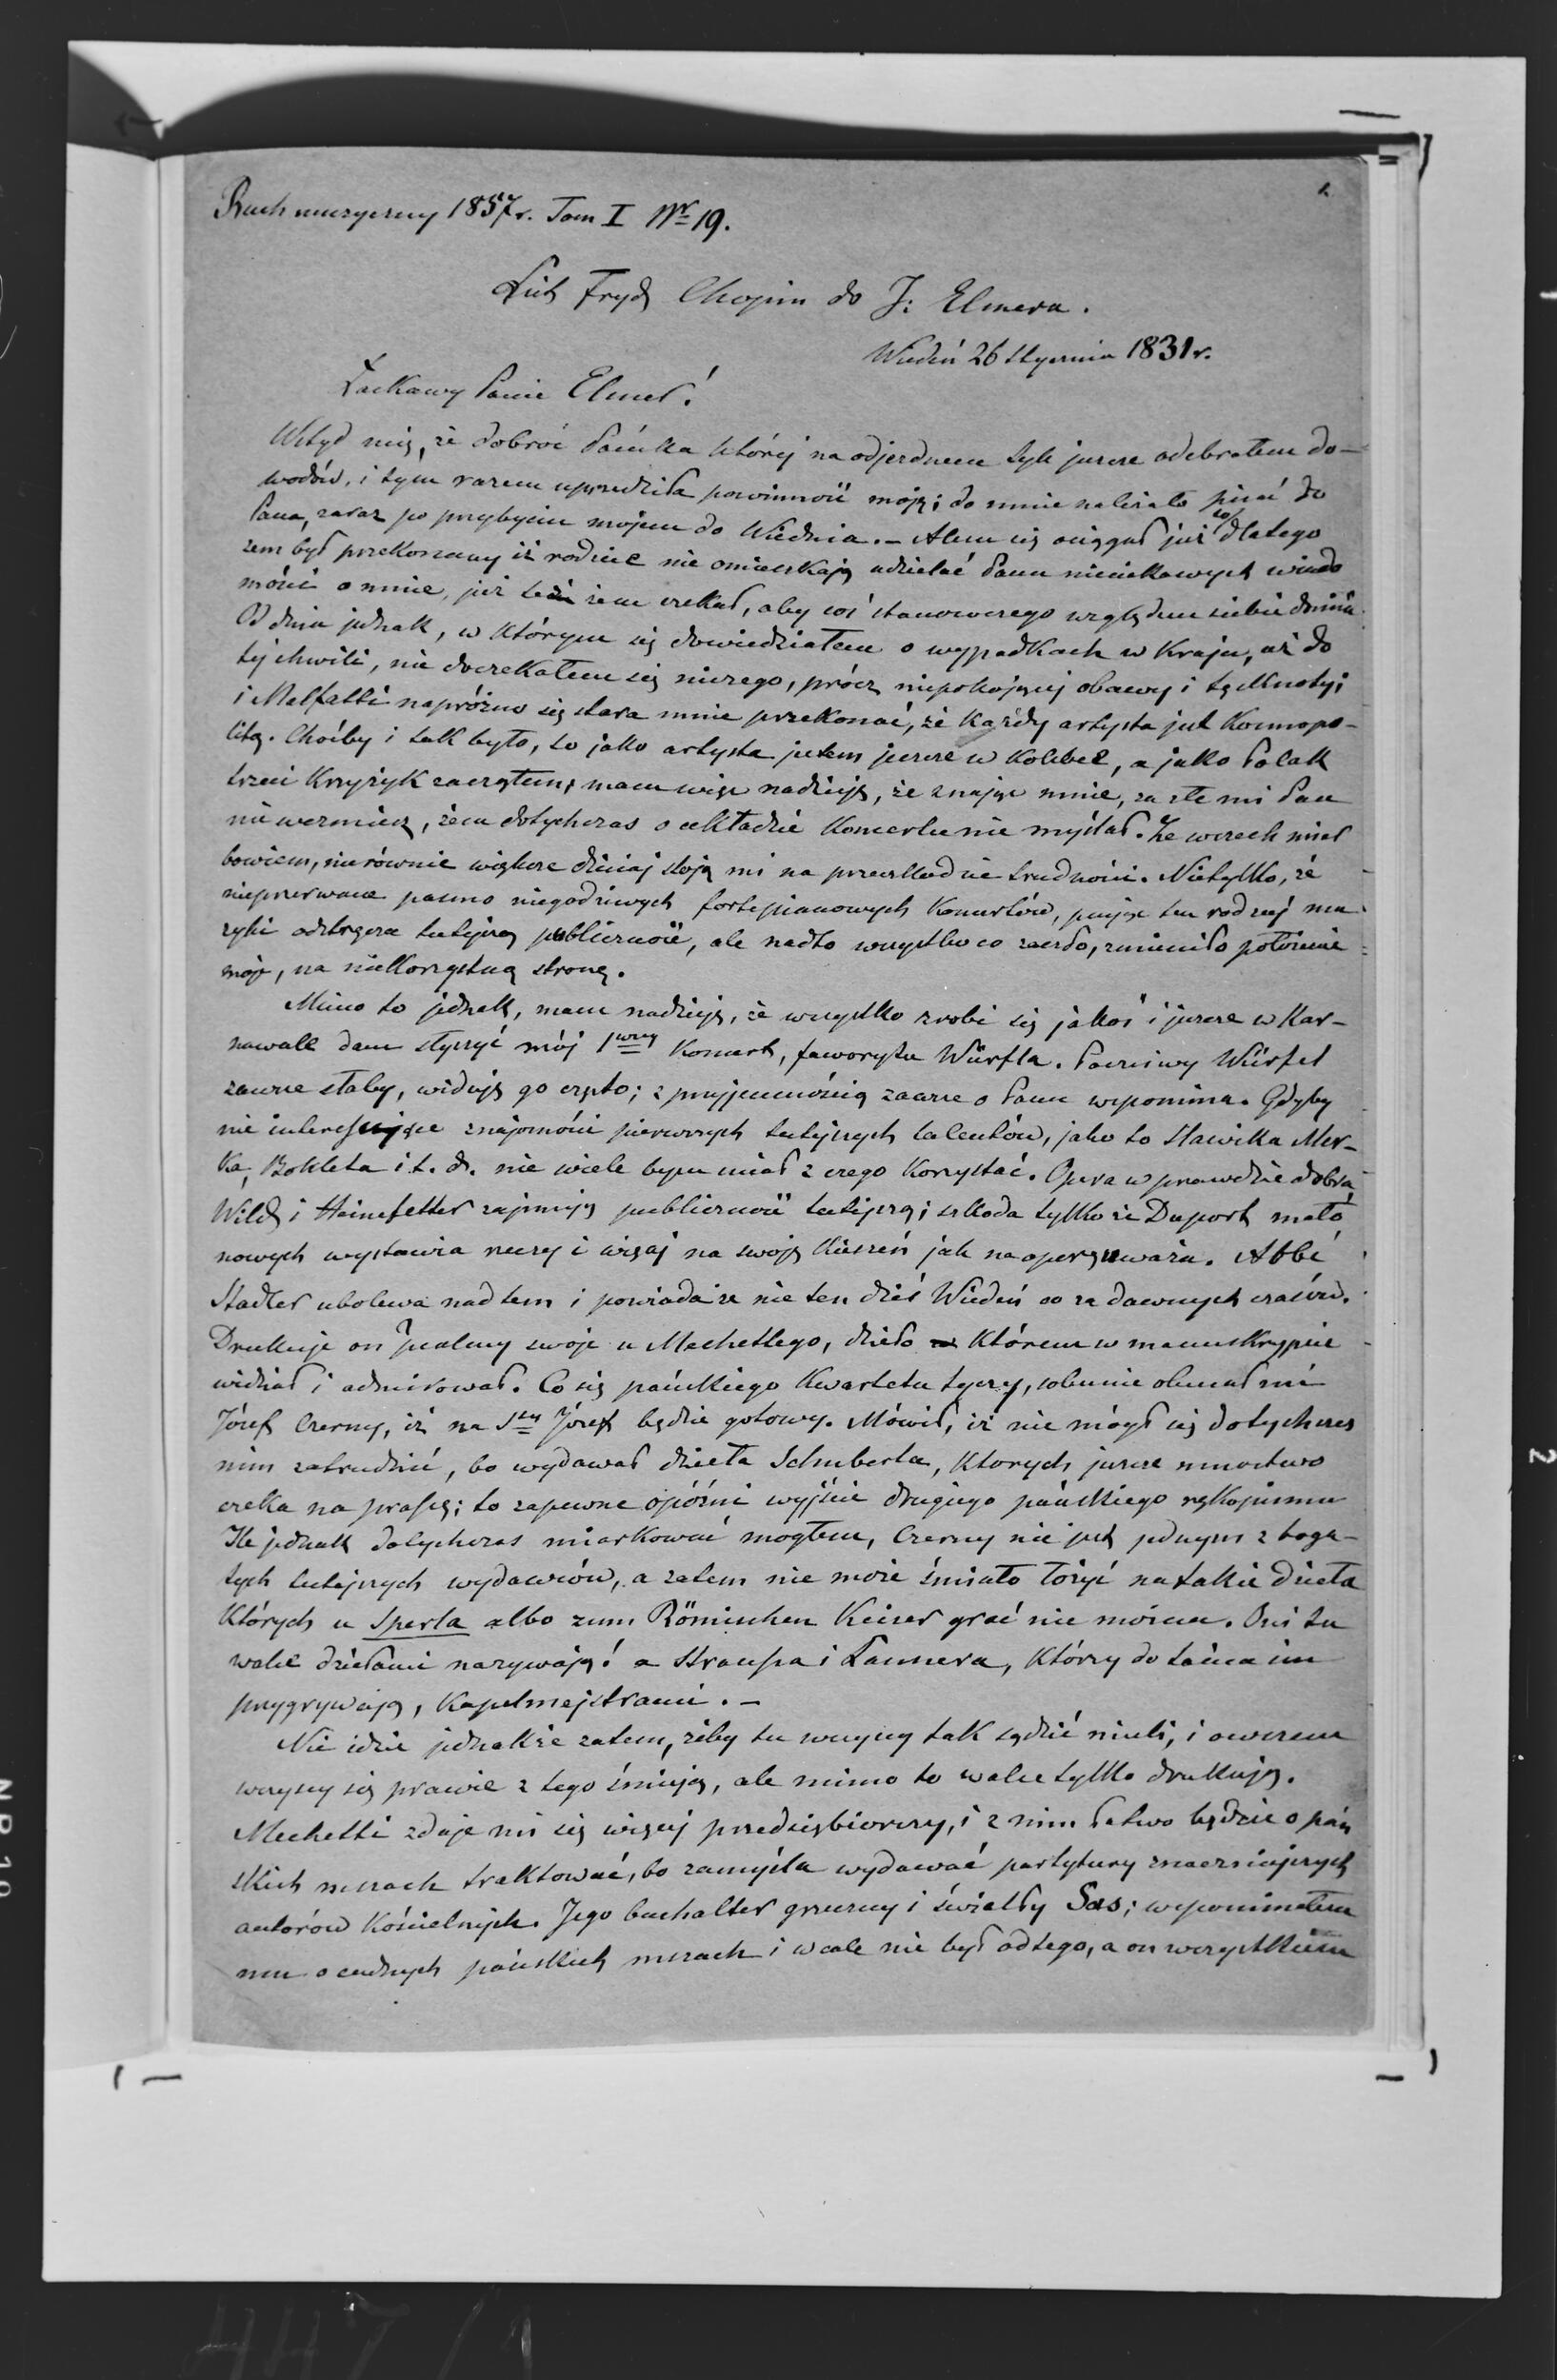 Ruch muzyczny 1857r. Tom I Nr 19.
List Fryd. Chopin do J: Elsnera.
Wiedeń 26 Stycznia 1831r.
Łaskawy Panie Elsner!
Wstyd mię, że dobroć Pańska której na odjezdnem tyle jeszcze odebrałem do-
wodów, i tym razem uprzedziła powinność moję; do mnie należało pisać do
Pana, zaraz po przybyciu mojem do Wiednia. – Alem się ociągał już to dlatego
żem był przekonany iż rodzice nie omieszkają udzielać Panu nieciekawych wiado
mości o mnie, już też żem czekał, aby coś stanowczego względem siebie donieść.
Od dnia jednak, w którym się dowiedziałem o wypadkach w Kraju, aż do
tej chwili, nie doczekałem się niczego, prócz niepokojącej obawy i tęsknoty;
i Malfatti napróżno się stara mnie przekonać, że każdy artysta jest Kosmopo-
litą. Choćby i tak było, to jako artysta jestem jeszcze w Kolebce, a jako Polak
trzeci Krzyżyk zacząłem; mam więc nadzieję, że znając mnie, za złe mi Pan
nie weźmiesz, żem dotychczas o układzie Koncertu nie myślał. Ze wszech miar
bowiem, nierównie większe dzisiaj stoją mi na przeszkodzie trudności. Nietylko, że
nieprzerwane pasmo niegodziwych fortepianowych Koncertów, psując ten rodzaj mu
zyki odstręcza tutejszą publiczność, ale nadto wszystko co zaszło, zmieniło położenie
moje, na niekorzystną stronę.
Mimo to jednak, mam nadzieję, że wszystko zrobi się jakoś i jeszcze w Kar-
nawale dam słyszyć mój 1wszy Koncert, faworyta Würfla. Poczciwy Würfel
zawsze słaby, widuję go często; z przyjemnością zawsze o Panu wspomina. Gdyby
nie interessujące znajomości pierwszych tutejszych talentów, jako to Sławika Mer-
ka, Bokleta i t. d. nie wiele bym miał z czego Korzystać. Opera wprawdzie dobra,
Wild i Heinefetter zajmują publiczność tutejszą; szkoda tylko że Duport mało
nowych wystawia rzeczy i więcej na swoję Kieszeń jak na operę uważa. Abbé
Stadler ubolewa nad tem i powiada że nie ten dziś Wiedeń co za dawnych czasów.
Drukuje on Psalmy swoje u Mechettego, dzieło Którem w manuskrypcie
widział i admirował. Co się pańskiego Kwartetu tyczy, solennie obiecał mi
Józef Czerny, iż na Sty Józef będzie gotowy. Mówił, iż nie mógł się dotychczas
nim zatrudnić, bo wydawał dzieła Schuberta, Ktorych jeszcze mnóstwo
czeka na prassę; to zapewne opóźni wyjście drugiego pańskiego rękopismu
Ile jednak dotychczas miarkować mogłem, Czerny nie jest jednym z boga-
tych tutejszych wydawców, a zatem nie może śmiało łożyć na takie dzieła
Których u Sperla albo zum Römischen Keiser grać nie można. Oni tu
walce dziełami nazywają! a Straussa i Lannera, Którzy do tańca im
przygrywają, Kapelmejstrami. –
Nie idzie jednakże zatem, żeby tu wszyscy tak sądzić mieli, i owszem
wszyscy się prawie z tego śmieją, ale mimo to walce tylko drukują.
Mechetti zdaje mi się więcej przedsiębiorczy, i z nim łatwo będzie o pań
skich mszach traktować, bo zamyśla wydawać partytury znaczniejszych
autorów Kościelnych. Jego buchalter grzeczny i światły Sas; wspominałem
mu o cudnych pańskich mszach i wcale nie był od tego, a on wszystkiem